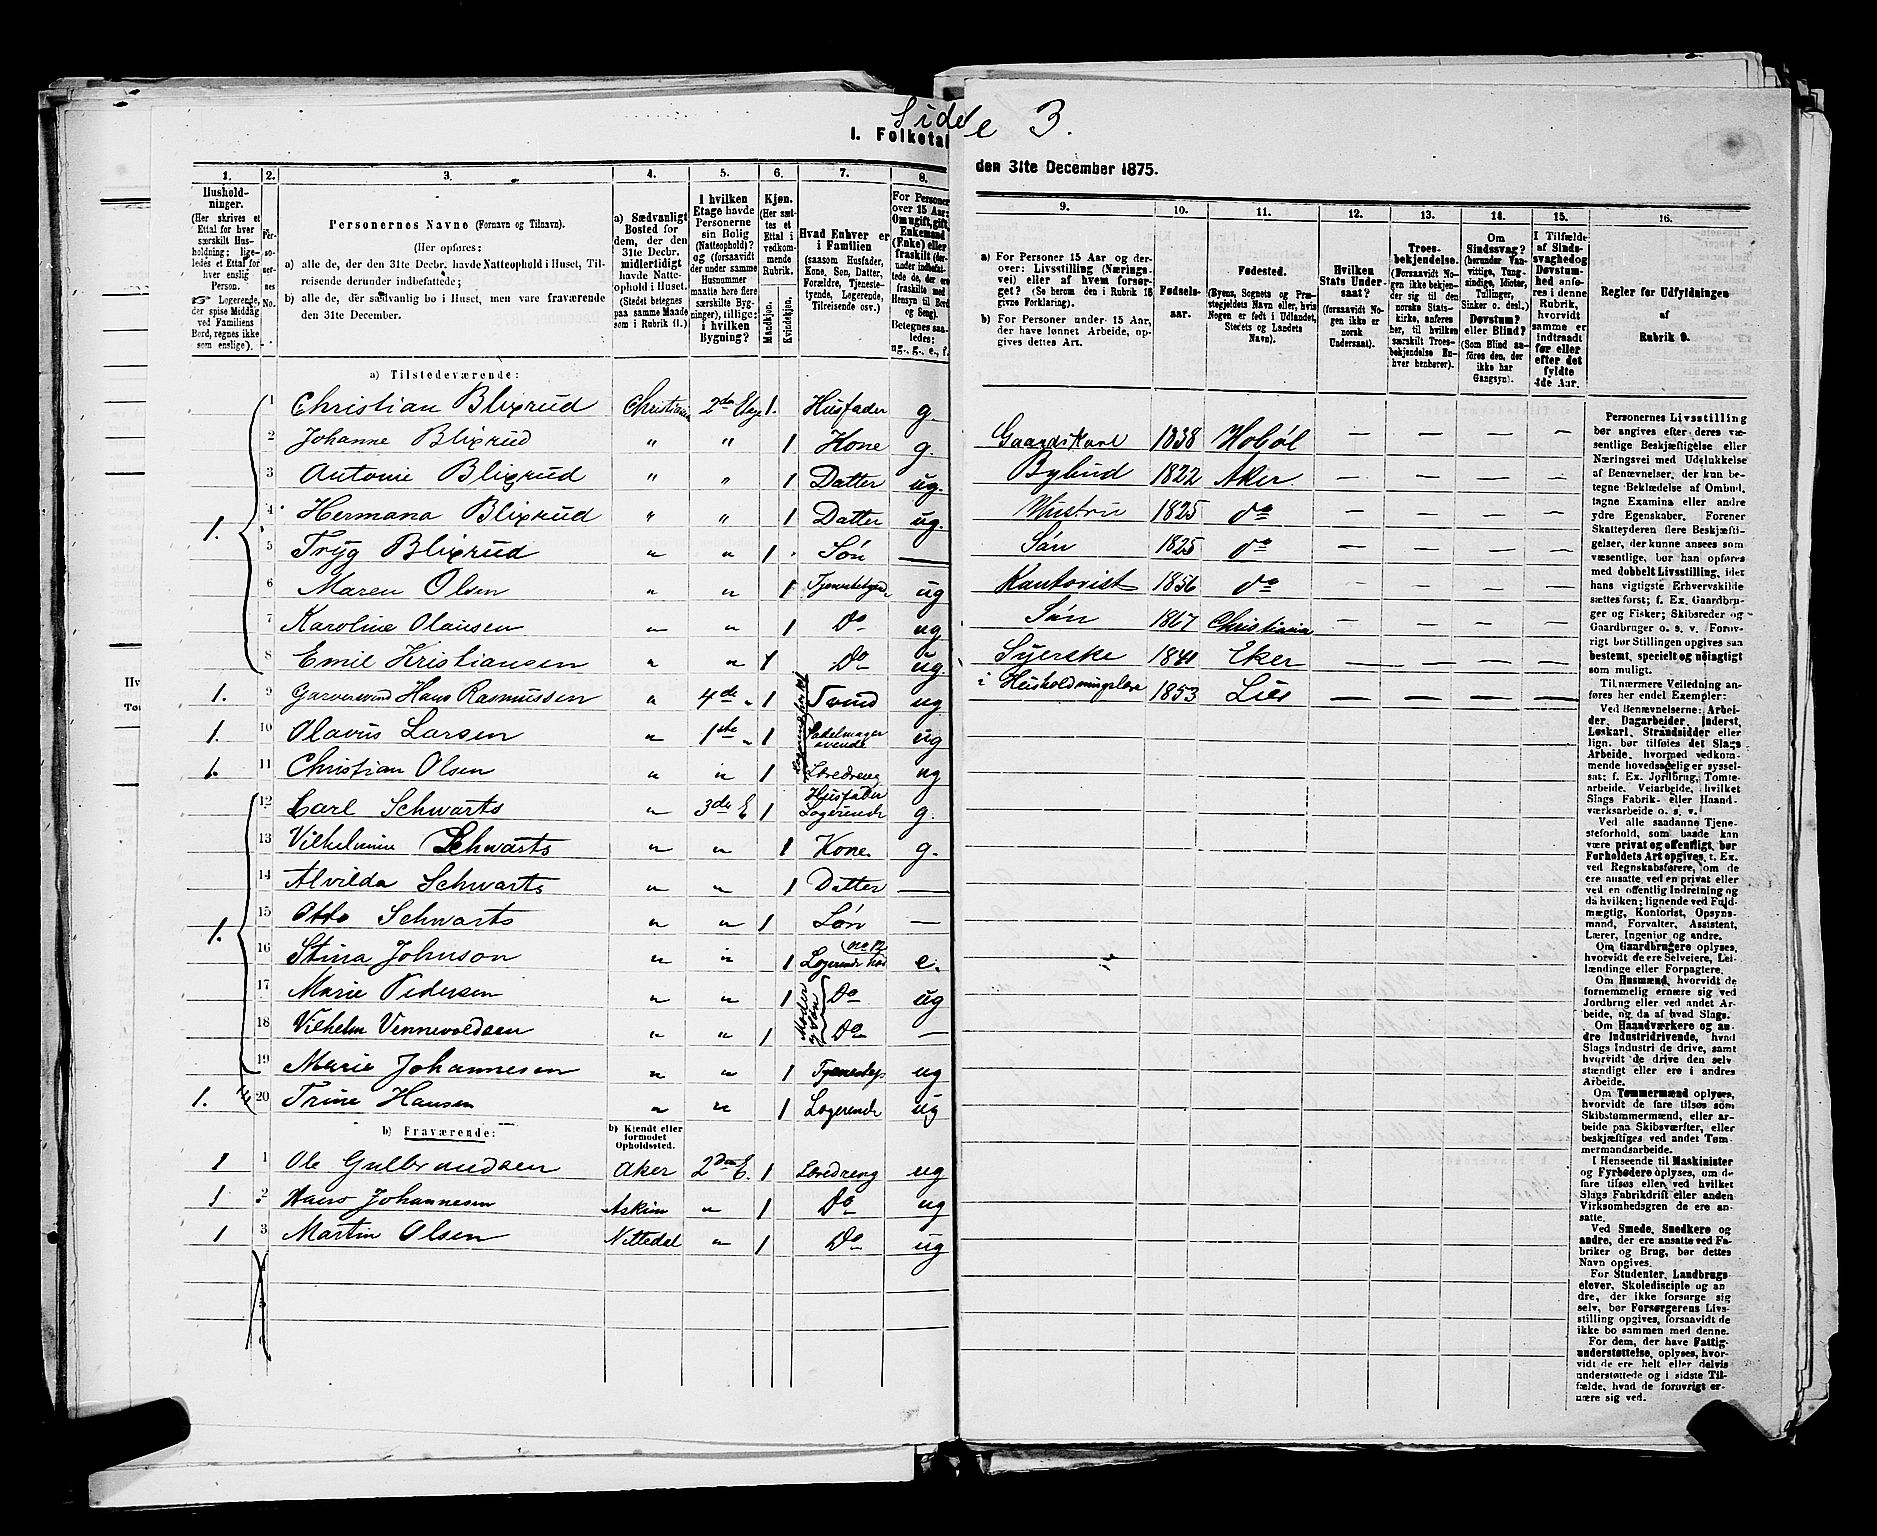 Side 3.
I. Folketal
den 31te December 1875.
1.
Hushold-
ninger.
(Her skrives et
Ettal for hver
særskilt Hus-
holdning; lige-
ledes et Ettal for
hver enslig
Person.
Logerende,
der spise Middag
ved Familiens
Bord, regnes ikke
som enslige).
2.
Per-
so-
ner-
nes
No.
3.
Personernes Navne (Fornavn og Tilnavn).
(Her opføres:
a) alle de, der den 31te Decbr. havde Natteophold i Huset, Til-
reisende derunder indbefattede;
b) alle de, der sædvanlig bo i Huset, men vare fraværende
den 31te December.
4.
a) Sædvanligt
Bosted for
dem, der den
31te Decbr.
midlertidigt
havde Natte-
ophold i Huset.
(Stedet betegnes
paa samme Maade
som i Rubrik 11.)
5.
I hvilken
Etage havde
Personerne
sin Bolig
(Natteophold)?
og (forsaavidt
der under samme
Husnummer
maatte høre flere
særskilte Byg-
ninger), tillige:
i hvilken
Bygning?
6.
Kjøn.
(Her sæt-
tes et
Ettal i
vedkom-
mende
Rubrik.
Mandkjøn.
Kvindekjøn.
7.
Hvad Enhver er
i Familien
(saasom Husfader,
Kone, Søn, Datter,
Forældre, Tjeneste-
tyende, Logerende,
Tilreisende osv.)
8.
For Personer
over 15 Aar:
Om ugift, gift,
Enkemand
(Enke) eller
fraskilt (der-
under indbefat-
tede de, der ere
fraskilte med
Hensyn til Bord
og Seng).
Betegnes saa-
ledes:
ug., g., e., f.
9.
a) For Personer 15 Aar og der-
over: Livsstilling (Nærings-
vei) eller af hvem forsør-
get? (Se herom den i Rubrik 16
givne Forklaring).
b) For Personer under 15 Aar,
der have lønnet Arbeide, op-
gives dettes Art.
10.
Fødsels-
aar.
11.
Fødested.
(Byens, Sognets og Præ-
stegjeldets Navn eller, hvis
Nogen er født i Udlandet,
Stedets og Landets
Navn).
12.
Hvilken
Stats Under-
saat?
(forsaavidt No-
gen ikke er
norsk
Undersaat).
13.
Troes-
bekjendelse.
(Forsaavidt No-
gen ikke bekjen-
der sig til den
norske Stats-
kirke, anføres
her, til hvilken
særskilt Troes-
bekjendelse En-
hver henhører).
14.
Om
Sindssvag?
(herunder Van-
vittige, Tung-
sindige, Idioter,
Tullinger,
Sinker o. desl.)
Døvstum?
eller Blind?
(Som Blind an-
føres den, der
ikke har
Gangsyn).
15.
I Tilfælde
af Sinds-
svaghed og
Døvstum-
hed anfø-
res i denne
Rubrik,
hvorvidt
samme er
indtraadt
før eller
efter det
fyldte
4de Aar.
16.
Regler for Udfyldningen
af
Rubrik 9.
a) Tilstedeværende:
1 Christian Blixrud Christiania 2de Etage 1. Husfader g
2 Johanne Blixrud " " 1 Kone g.
3 Antonie Blixrud " " 1 Datter ug.
1. 4 Hermana Blixrud " " 1 Datter ug.
5 Tryg Blixrud " " 1 Søn —
6 Maren Olsen " " 1 ug
7 Karoline Olausen " " 1 Do ug
8 Emil Kristiansen " " 1 Do ug.
1. 9 Hans Rasmussen " 4de " 1 Svend ug
1. 10 Olavus Larsen " 1ste " 1 ug
1. 11 Christian Olsen " " 1 Læredreng ug
12 Carl Schwarts " 3de E 1 Husfader Logerende g.
13 Vilhelmine Schwarts " " 1 Kone g.
14 Alvilda Schwarts " " 1 Datter —
1. 15 Otto Schwarts " " 1 Søn —
16 Stina Johnson " " 1 Logerende hos No 12 e.
17 Marie Pedersen " " 1 Moder og Søn Do ug
18 Vilhelm Vennevoldsen " " 1 Do —
19 Marie Johannesen " " 1 Tjenestep ug
1. 20 Trine Hansen " " 1 Logerende ug
b) Fraværende:
b) Kjendt eller
formodet
Opholdssted.
1 1 Ole Gulbrandsen Aker 2den E. 1 Læredreng ug
1 2 Hans Johannesen Askim " 1 Do ug
1 3 Martin Olsen Nittedal " 1 Do ug
Gaardskarl 1838 Hobøl — — — —
Bybud 1822 Aker — — — —
Hustru 1825 do — — — —
Søn 1825 do — — — —
Kontorist 1856 do — — — —
Søn 1867 Christiania — — — —
Syerske 1840 Eker — — — —
i Husholdningslære 1853 Lier — — — —
Personernes Livsstilling
bør angives efter deres væ-
sentlige Beskjæftigelse eller
Næringsvei med Udelukkelse
af Benævnelser, der kun be-
tegne Beklædelse af Ombud,
tagne Examina eller andre
ydre Egenskaber. Forener
Skatteyderen flere Beskjæfti-
gelser, der kunne ansees som
væsentlige, bør han opføres
med dobbelt Livsstilling, idet
hans vigtigste Erhvervskilde
sættes først; f. Ex. Gaardbru-
ger og Fisker; Skibsreder og
Gaardbruger o. s. v. Forøv-
rigt bør Stillingen opgives saa
bestemt, specielt og nøiagtigt
som muligt.
Til nærmere Veiledning an-
føres her endel Exempler:
Ved Benævnelserne: Arbei-
der, Dagarbeider, Inderst,
Løskarl, Strandsidder eller
lign. bør tilføies det Slags
Arbeide, hvormed vedkom-
mende hovedsagelig er syssel-
sat; f. Ex. Jordbrug, Tomte-
arbeide, Veiarbeide, hvilket
Slags Fabrik- eller Haand-
værksarbeide o. s. v.
Ved alle saadanne Tjene-
steforhold, som baade kan
være privat og offentligt, bør
Forholdets Art opgives, t. Ex.
ved Regnskabsførere, om de
ere ansatte ved en privat eller
ved en offentlig Indretning og
da hvilken; lignende ved Fuld-
mægtig, Kontorist, Opsyns-
mand, Forvalter, Assistent,
Lærer, Ingeniør og andre.
Om Gaardbrugere oplyses,
hvorvidt de ere Selveiere, Lei-
lændinge eller Forpagtere.
Om Husmænd, hvorvidt de
fornemmelig ernære sig ved
Jordbrug eller ved andet Ar-
beide, og da af hvad Slags.
Om Haandværkere og an-
dre Industridrivende, hvad
Slags Industri de drive, samt
hvorvidt de drive den selv-
stændigt eller ere i andres
Arbeide.
Om Tømmermænd oplyses,
hvorvidt de fare tilsøs som
Skibstømmermænd, eller ar-
beide paa Skibsværfter, eller
beskjæftiges ved andet Tøm-
mermandsarbeide.
I Henseende til Maskinister
og Fyrbødere oplyses, om de
fare tilsøs eller ved hvilket
Slags Fabrikdrift eller anden
Virksomhedsgren de ere an-
satte.
Ved Smede, Snedkere og
andre, der ere ansatte ved Fa-
briker og Brug, bør dettes
Navn opgives.
For Studenter, Landbrugs-
elever, Skoledisciple og an-
dre, der ikke forsørge sig
selv, bør Forsørgerens Livs-
stilling opgives, forsaavidt de
ikke bo sammen med denne.
For dem, der have Fattig-
understøttelse, oplyses, hvor-
vidt de ere helt eller delvis
understøttede og i sidste Til-
fælde, hvad de forøvrigt er-
nære sig ved.